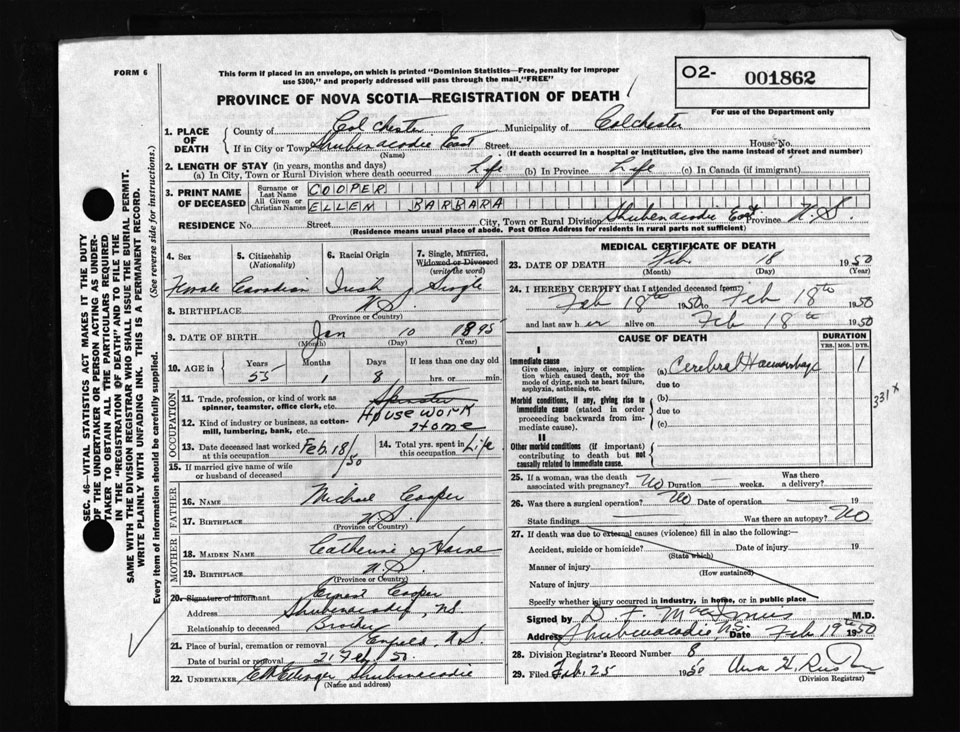 FORM 6
This form if placed in an envelope, on which is printed "Dominion Statistics—Free, penalty for improper
use $300," and properly addressed will pass through the mail, "FREE"
PROVINCE OF NOVA SCOTIA—REGISTRATION OF DEATH
O2- 001862
For use of the Department only
1. PLACE OF DEATH
County of Colchester Municipality of Colchester
If in City or Town Shubenacadie East Street House No.
(Name) (If death occurred in a hospital or institution, give the name instead of street and number)
2. LENGTH OF STAY (in years, months and days)
(a) In City, Town or Rural Division where death occurred Life (b) In Province Life (c) In Canada (if immigrant)
3. PRINT NAME OF DECEASED
Surname or Last Name COOPER
All Given or Christian Names ELLEN BARBARA
RESIDENCE No. Street City, Town or Rural Division Shubenacadie East Province N.S.
(Residence means usual place of abode. Post Office Address for residents in rural parts not sufficient)
4. Sex 5. Citizenship (Nationality) 6. Racial Origin 7. Single, Married, Widowed or Divorced (write the word)
Female Canadian Irish Single
8. BIRTHPLACE N.S.
(Province or Country)
9. DATE OF BIRTH Jan 10 1895
(Month) (Day) (Year)
10. AGE in Years Months Days If less than one day old
55 1 8 hrs. or min.
OCCUPATION
11. Trade, profession, or kind of work as Spinster
spinner, teamster, office clerk, etc. House work
12. Kind of industry or business, as cotton-mill, lumbering, bank, etc. Home
13. Date deceased last worked at this occupation Feb. 18/50 14. Total yrs. spent in this occupation Life
15. If married give name of wife or husband of deceased
FATHER
16. NAME Michael Cooper
17. BIRTHPLACE N.S.
(Province or Country)
MOTHER
18. MAIDEN NAME Catherine Horne
19. BIRTHPLACE N.S.
(Province or Country)
20. Signature of Informant Ernest Cooper
Address Shubenacadie, NS.
Relationship to deceased Brother
21. Place of burial, cremation or removal Enfield, N.S.
Date of burial or removal 21 Feb. 50.
22. UNDERTAKER Ettinger, Shubenacadie
(Name and address)
MEDICAL CERTIFICATE OF DEATH
23. DATE OF DEATH Feb. 18 1950
(Month) (Day) (Year)
24. I HEREBY CERTIFY that I attended deceased from:
Feb 18th 1950 to Feb 18th 1950
and last saw her alive on Feb 18th 1950
CAUSE OF DEATH DURATION
YRS. MOS. DYS.
I
Immediate cause
Give disease, injury or complication which caused death, not the mode of dying, such as heart failure, asphyxia, asthenia, etc.
(a) Cerebral Haemorrhage 1
due to
Morbid conditions, if any, giving rise to immediate cause (stated in order proceeding backwards from immediate cause).
(b)
due to
(c)
331x
II
Other morbid conditions (if important) contributing to death but not causally related to immediate cause.
25. If a woman, was the death associated with pregnancy? No Duration weeks. Was there a delivery?
26. Was there a surgical operation? No Date of operation 19
State findings Was there an autopsy? No
27. If death was due to external causes (violence) fill in also the following:—
Accident, suicide or homicide? Date of injury 19
(State which)
Manner of injury
(How sustained)
Nature of injury
Specify whether injury occurred in industry, in home, or in public place
Signed by D. F. MacInnis M.D.
Address Shubenacadie, N.S. Date Feb 19th 1950
28. Division Registrar's Record Number 8
29. Filed Feb. 25 1950
(Division Registrar)
SEC. 46—VITAL STATISTICS ACT MAKES IT THE DUTY
OF THE UNDERTAKER OR PERSON ACTING AS UNDER-
TAKER TO OBTAIN ALL THE PARTICULARS REQUIRED
IN THE "REGISTRATION OF DEATH" AND TO FILE THE
SAME WITH THE DIVISION REGISTRAR WHO SHALL ISSUE THE BURIAL PERMIT.
WRITE PLAINLY WITH UNFADING INK. THIS IS A PERMANENT RECORD.
Every item of information should be carefully supplied. (See reverse side for instructions.)